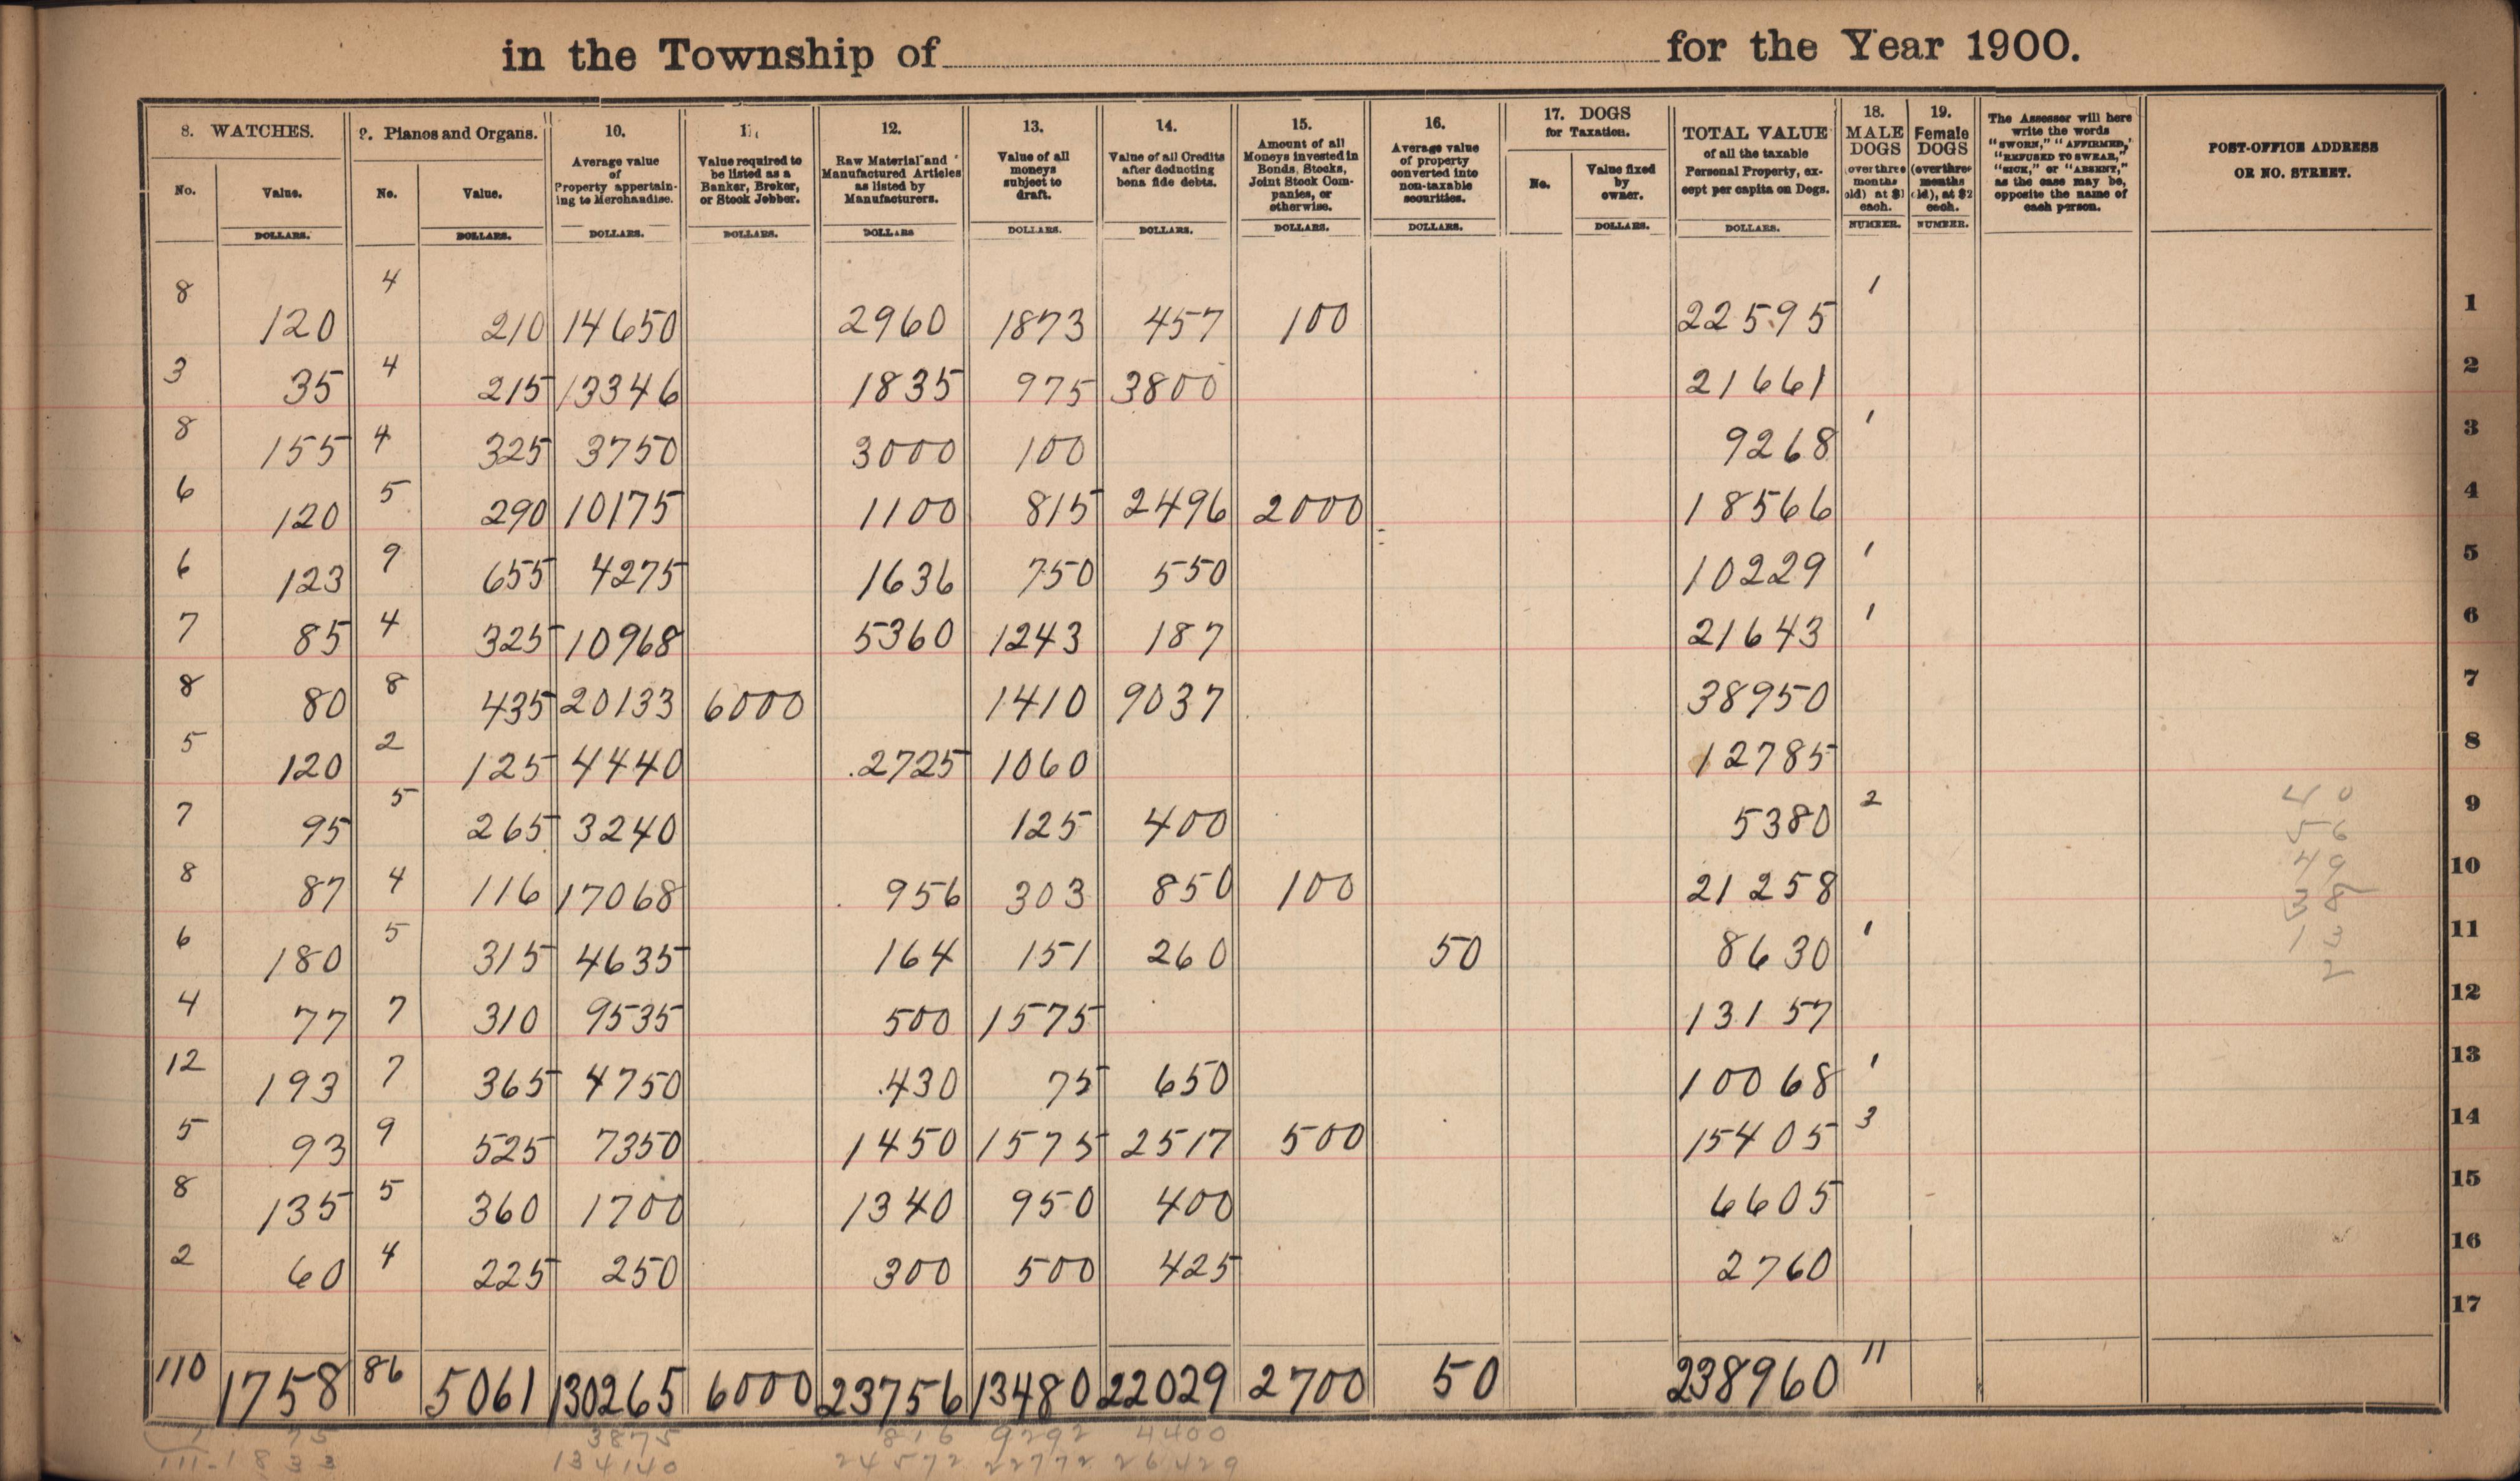 in the Township of for the Year 1900.
8. WATCHES. 9. Pianos and Organs. 10. 11. 12. 13. 14. 15. 16. 17. DOGS for Taxation. TOTAL VALUE of all the taxable Personal Property, except per capita on Dogs. 18. MALE DOGS 19. Female DOGS
No. Value. DOLLARS.
No. Value. DOLLARS.
Average value of Property appertaining to Merchandise. DOLLARS.
Value required to be listed as a Banker, Broker, or Stock Jobber. DOLLARS.
Raw Material and Manufactured Articles as listed by Manufacturers. DOLLARS
Value of all moneys subject to draft. DOLLARS.
Value of all Credits after deducting bona fide debts. DOLLARS.
Amount of all Moneys invested in Bonds, Stocks, Joint Stock Companies, or otherwise. DOLLARS.
Average value of property converted into non-taxable securities. DOLLARS.
No. Value fixed by owner. DOLLARS.
DOLLARS.
(over three months old) at $1 each. NUMBER.
(over three months old), at $2 each. NUMBER.
The Assessor will here write the words "SWORN," "AFFIRMED," "REFUSED TO SWEAR," "SICK," or "ABSENT," as the case may be, opposite the name of each person.
POST-OFFICE ADDRESS OR NO. STREET.
8 120 4 210 14650 2960 1873 457 100 22595 1 1
3 35 4 215 13346 1835 975 3800 21661 2
8 155 4 325 3750 3000 100 9268 1 3
6 120 5 290 10175 1100 815 2496 2000 18566 4
6 123 9 655 4275 1636 750 550 10229 1 5
7 85 4 325 10968 5360 1243 187 21643 1 6
8 80 8 435 20133 6000 1410 9037 38950 7
5 120 2 125 4440 2725 1060 12785 8
7 95 5 265 3240 125 400 5380 2 9
8 87 4 116 17068 956 303 850 100 21258 10
6 180 5 315 4635 164 151 260 50 8630 1 11
4 77 7 310 9535 500 1575 13157 12
12 193 7 365 4750 430 75 650 10068 1 13
5 93 9 525 7350 1450 1575 2517 500 15405 3 14
8 135 5 360 1700 1340 950 400 6605 15
2 60 4 225 250 300 500 425 2760 16
17
110 1758 86 5061 130265 6000 23756 13480 22029 2700 50 238960 11
1 75 3875 816 9292 4400
111 1833 134140 24572 22772 26429
40
56
49
38
13
2